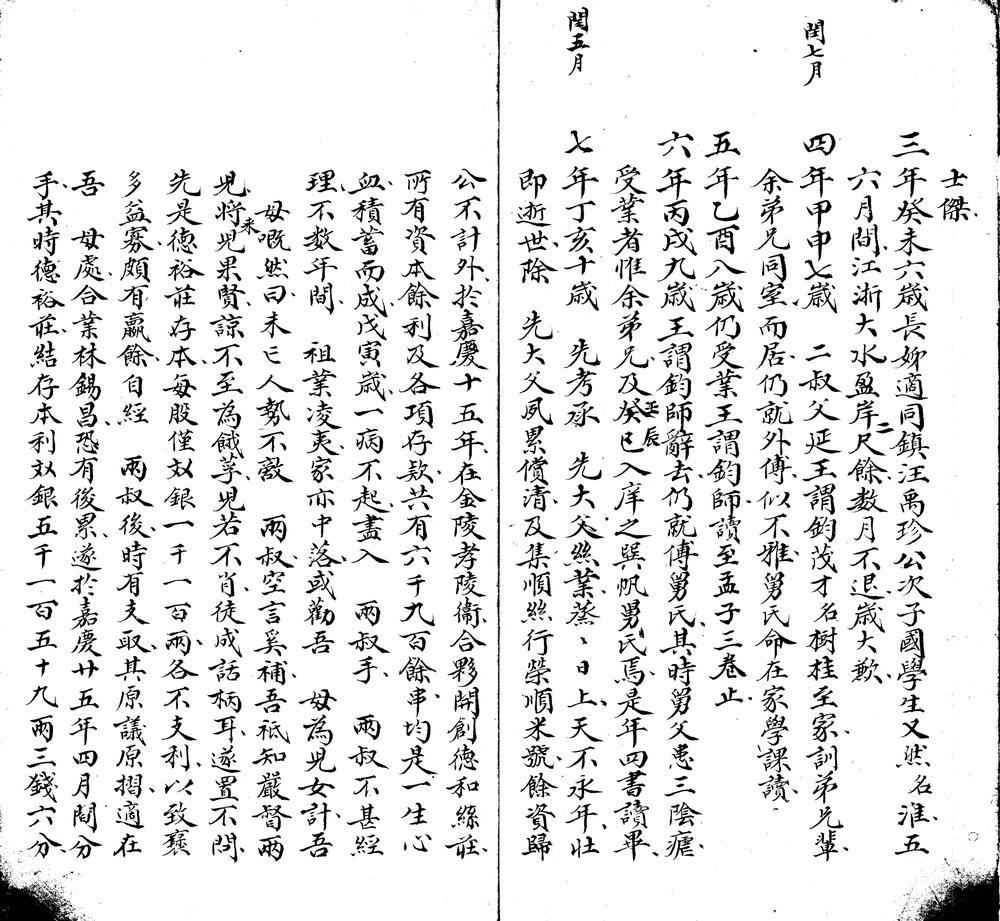 士傑
三年癸未六歲長姊適同鎮汪禹珍公次子國學生又然名淮五
六月間江浙大水盈岸二尺餘數月不退歲大歉
閏七月
四年甲申七歲　二叔父延王謂鈞茂才名樹桂至家訓弟兄輩
余弟兄同室而居仍就外傅似不雅舅氏命在家學課讀
五年乙酉八歲仍受業王謂鈞師讀至孟子三卷止
六年丙戌九歲王謂鈞師辭去仍就傅舅氏其時舅父患三陰瘧
受業者惟余弟兄及癸巳壬辰入庠之吳帆男氏焉是年四書讀畢
閏五月
七年丁亥十歲　先考承　先大父絲業蒸〻日上天不永年壯
即逝世除　先大父夙累償清及集順絲行榮順米號餘資歸
公不計外於嘉慶十五年在金陵孝陵衛合夥開創德和絲莊
所有資本餘利及各項存款共有六千九百餘串均是一生心
血積蓄而成戊寅歲一病不起盡入　兩叔手　兩叔不甚經
理不數年間　祖業凌夷家亦中落或勸吾　母為兒女計吾
母嘅然曰未亡人勢不敵　兩叔空言奚補吾祗知嚴督兩
兒將來兒果賢諒不至為餓莩兒若不肖徒成話柄耳遂置不問
先是德裕莊存本每股僅玅銀一千一百兩各不支利以致裒
多益寡頗有贏餘自經　兩叔後時有支取其原議原摺適在
吾　母處合業林錫昌恐有後累遂於嘉慶廿五年四月間分
手其時德裕莊結存本利玅銀五千一百五十九兩三錢六分